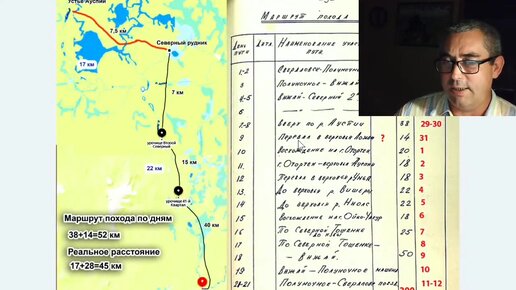 Устье Ауспии
7,5 км
Северный рудник
17 км
7 км
урочище Второй Северный
15 км
22 км
урочище 41-й Квартал
40 км
Маршрут похода по дням
38+14=52 км
Реальное расстояние
17+28=45 км
Маршрут похода
День пути
Дата
Наименование участ
пути
1-2 Свердловск-Полуночное
3 Полуночное - Вижай
4-5 Вижай-Северный 2ой
7-8 Вверх по р. Ауспии 38 29-30
9 Перевал в верховья Лозьвы ? 14 31
10 Восхождение на г. Отортен 20 1
11 г. Отортен - верховья Ауспии 18 2
12 Перевал в верховья р. Унья 18 3
13 До верховьев р. Вишеры 22 4
14 До верховьев р. Ниолс 22 5
15 Восхождение на г. Ойко-Чакур 18 6
16 По Северной Тошемке 25 7
17 По Северной Тошемке - 8
18 Вижай. 50 9
19 Вижай - Полуночное машина 10
20-21 Полуночное - Свердловск поезд 11-12